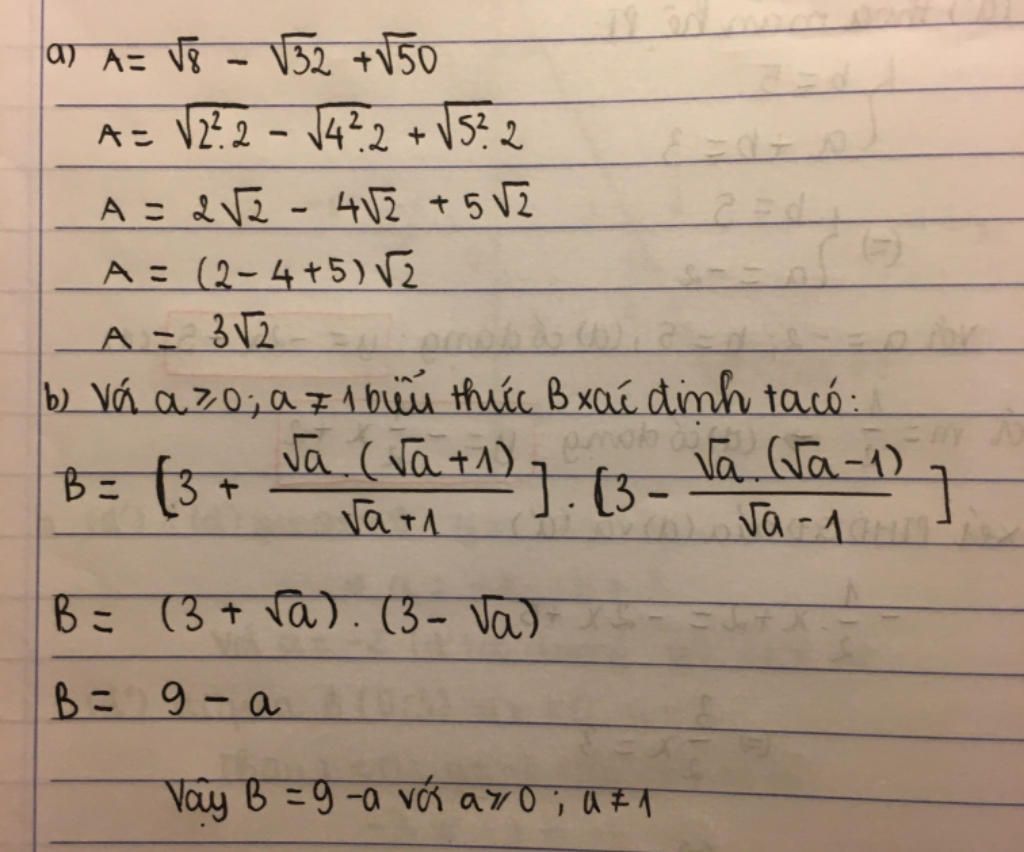 a) A = √8 − √32 + √50
A = √2².2 − √4².2 + √5².2
A = 2√2 − 4√2 + 5√2
A = (2 − 4 + 5)√2
A = 3√2
b) Với a ≥ 0; a ≠ 1 biểu thức B xác định ta có:
B = [3 + √a.(√a + 1)/(√a + 1)] . [3 − √a.(√a − 1)/(√a − 1)]
B = (3 + √a) . (3 − √a)
B = 9 − a
Vậy B = 9 − a với a ≥ 0; a ≠ 1